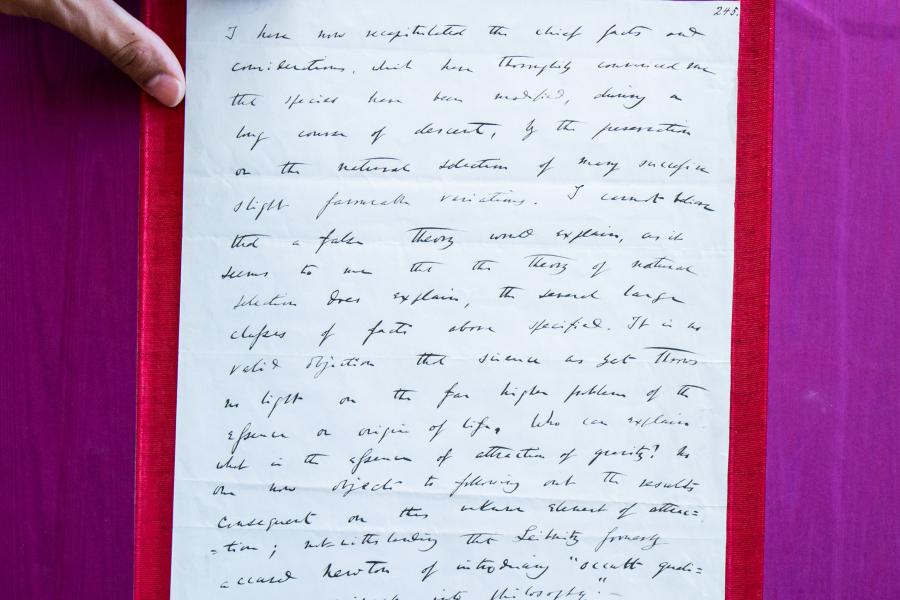 245.
I have now recapitulated the chief facts and
considerations, which have thoroughly convinced me
that species have been modified, during a
long course of descent, by the preservation
or the natural selection of many successive
slight favourable variations. I cannot believe
that a false theory would explain, as it
seems to me that the theory of natural
selection does explain, the several large
classes of facts above specified. It is no
valid objection that science as yet throws
no light on the far higher problem of the
essence or origin of life. Who can explain
what is the essence of attraction of gravity? No
one now objects to following out the results
consequent on this unknown element of attrac=
=tion; notwithstanding that Leibnitz formerly
accused Newton of introducing "occult quali=
into philosophy."—